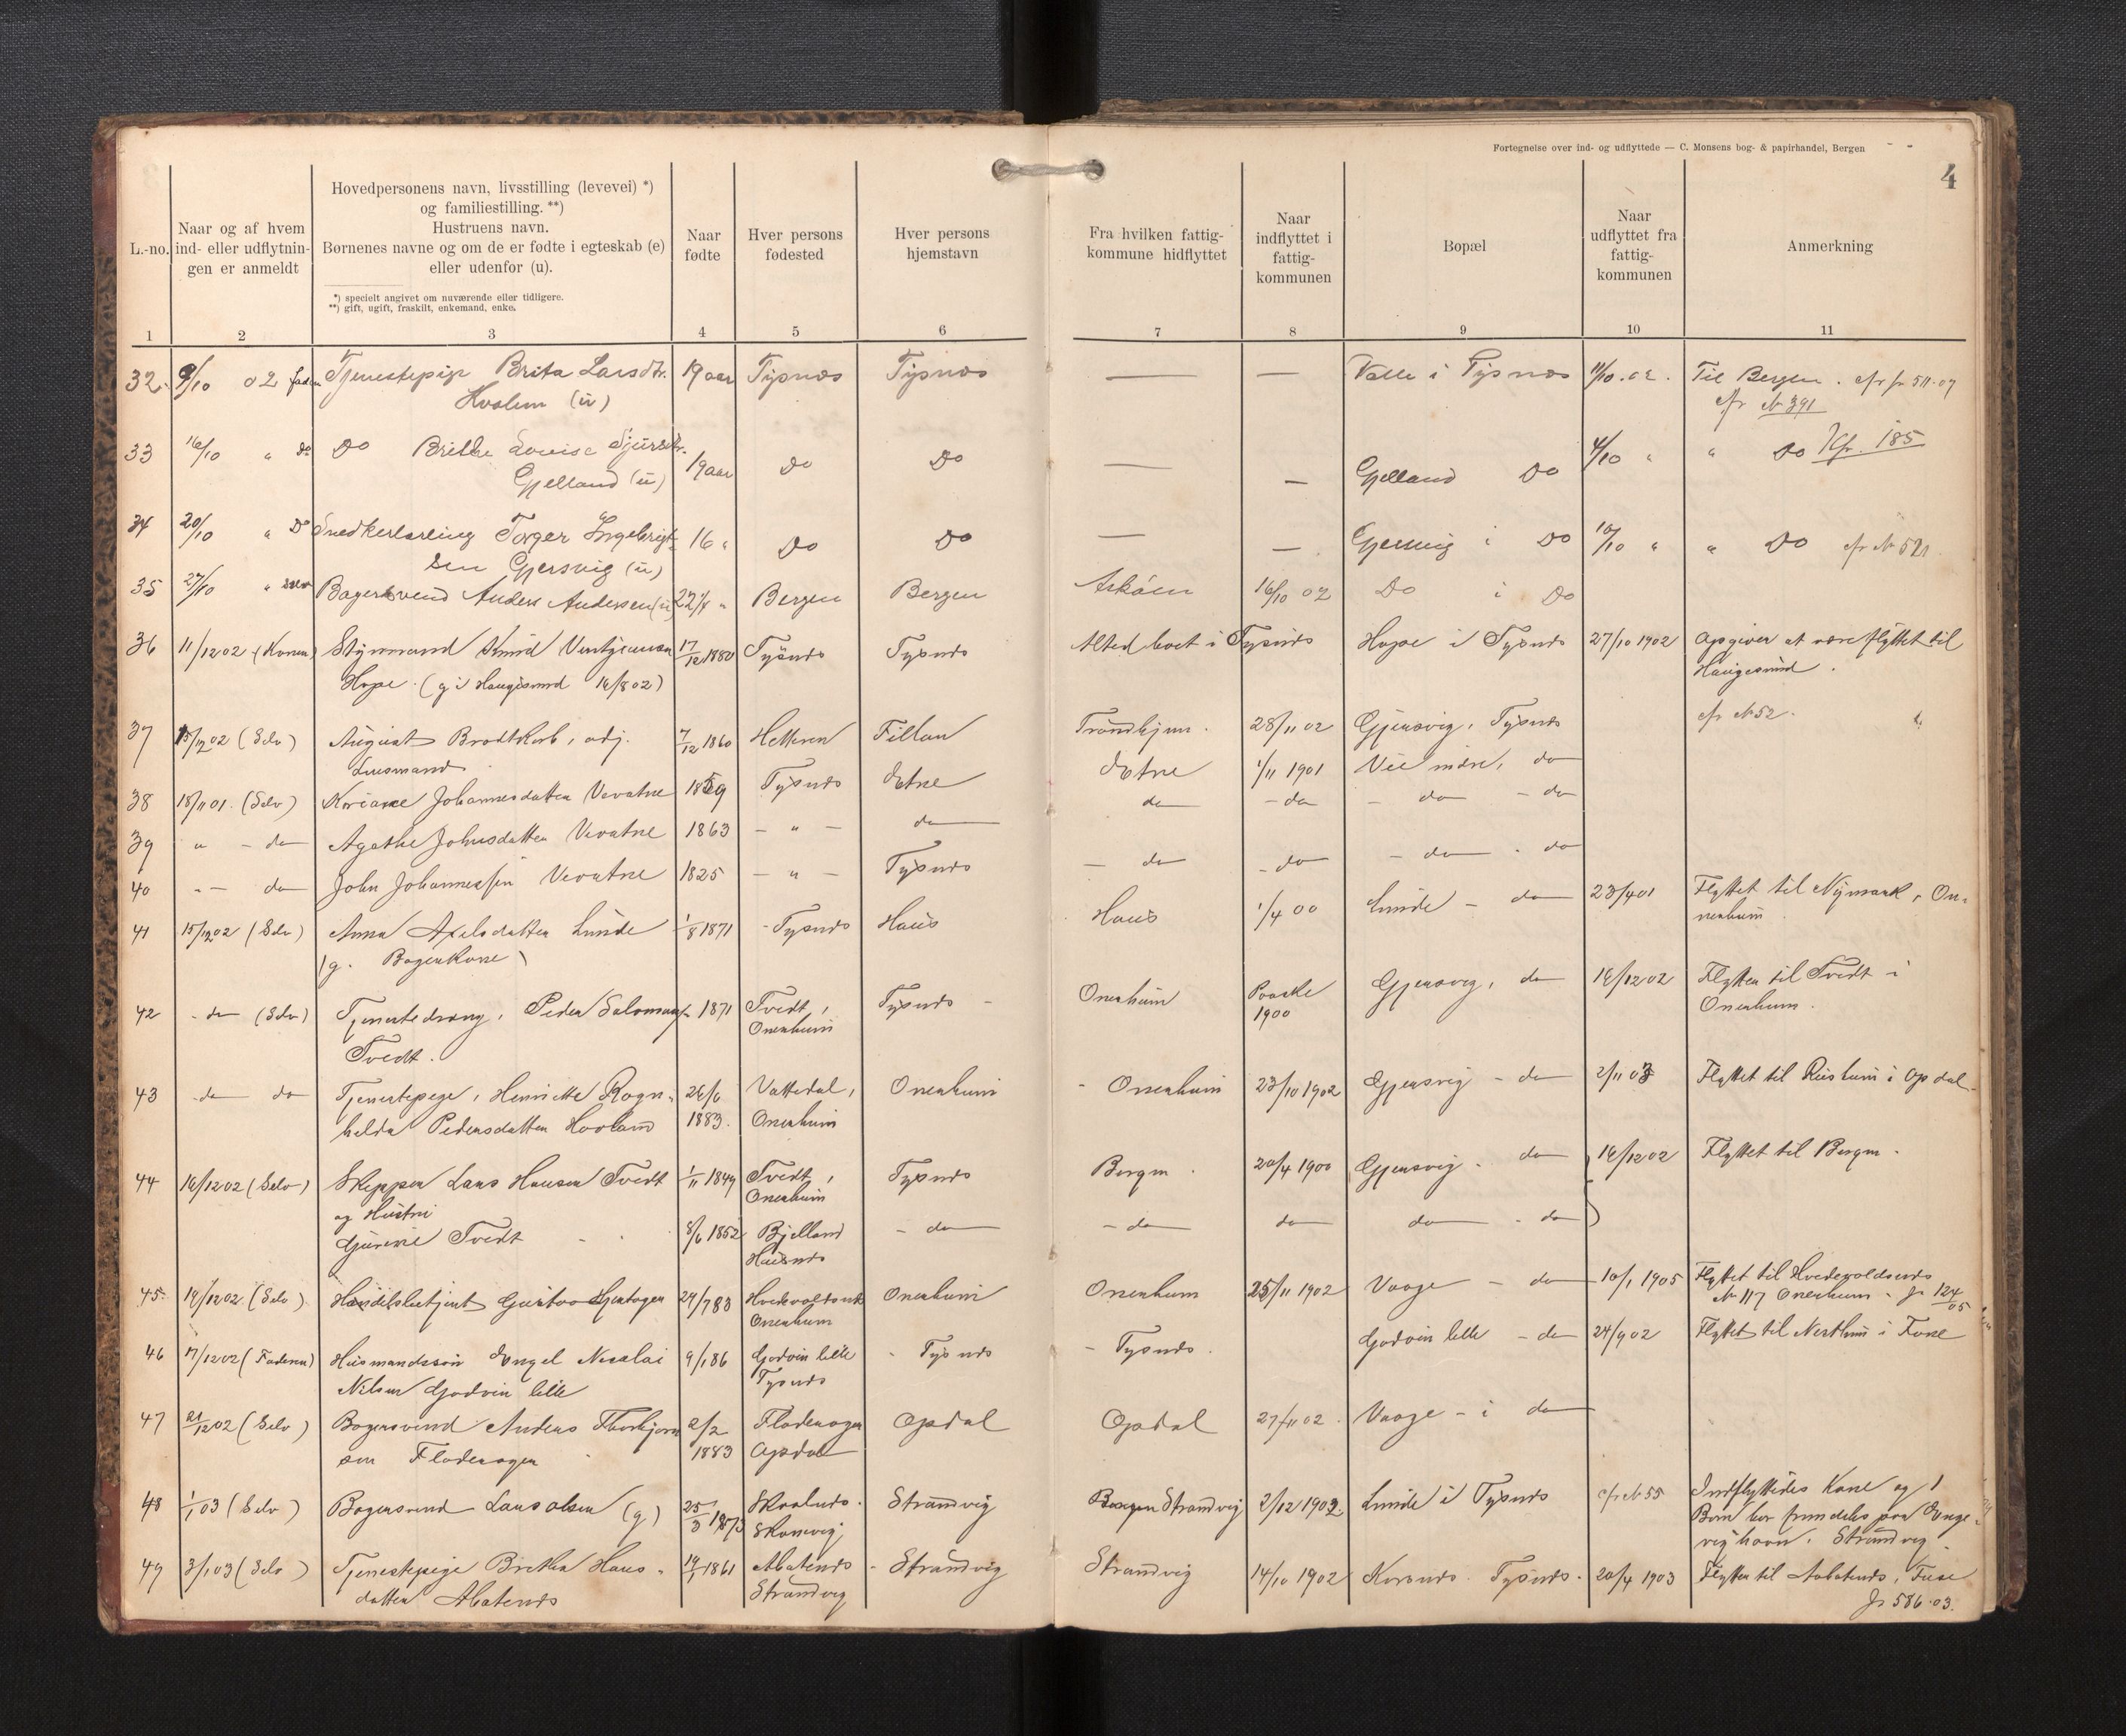 Fortegnelse over ind- og udflyttede — C. Monsens bog- & papirhandel, Bergen
4
L.-no.
Naar og af hvem
ind- eller udflytnin-
gen er anmeldt
Hovedpersonens navn, livsstilling (levevei) *)
og familiestilling. **)
Hustruens navn.
Børnenes navne og om de er fødte i egteskab (e)
eller udenfor (u).
*) specielt angivet om nuværende eller tidligere.
**) gift, ugift, fraskilt, enkemand, enke.
Naar
fødte
Hver persons
fødested
Hver persons
hjemstavn
Fra hvilken fattig-
kommune hidflyttet
Naar
indflyttet i
fattig-
kommunen
Bopæl
Naar
udflyttet fra
fattig-
kommunen
Anmerkning
1 2 3 4 5 6 7 8 9 10 11
32. 9/10 02 Tjenestepige Brita Larsdtr. 19 aar Tysnæs Tysnæs — — Valle i Tysnæs 11/10.02. Til Bergen. cfr jr 511.07
Hvalen (u) cfr No 391
33 16/10 " Do Do Louise Sjursdtr. 19 aar Do Do — — Gjelland Do 4/10 " " Do Kfr. 185
Gjelland (u)
34 20/10 " Do Snedkerlærling Torger Ingebrigt- 16 " Do Do — — Gjersvig i Do 10/10 " " Do cfr No 521
sen Gjersvig (u)
35 27/10 " Selv Bagersvend Anders Andersen (u) 22 1/8 " Bergen Bergen Askøen 16/10 02 Do i Do
36 11/12 02 (Konen) Styrmand 17/12 1880 Tysnæs Tysnæs Altid boet i Tysnæs Hope i Tysnæs 27/10 1902 Opgiver at være flyttet til
Hope. (g i Haugesund 16/8 02) Haugesund.
37 15/12 02 (Selv) August Brodtkorb, adj. 7/12 1860 Hitteren Fillan Trondhjem. 28/11 02 Gjersvig, Tysnæs cfr No 52.
Lensmand
38 18/11 01. (Selv) Johannesdatter Vevatne 1859 Tysnæs Etne Etne 1/11 1901 Vee indre, do
39 " - do Agathe Johnsdatter Vevatne 1863 - " - do do - do - do - do
40 " - do John Johannessen Vevatne 1825 - " - Tysnæs - do - do - do - do
41 15/12 02 (Selv) Anna Axelsdatter Lunde 1/8 1871 - Tysnæs Haus Haus 1/4 00 Lunde - do 23/4 01 Flyttet til Nymark, On-
(g. Bagerkone) nenheim
42 - do (Selv) Tjenestedreng, Peder Salomons. 1871 Tvedt, Tysnæs - Onenheim Paaske Gjersvig, do 16/12 02 Flytter til Tvedt i
Tvedt. Onenheim 1900 Onenheim.
43 do do Tjenestepige, Henriette Ragn- 26/6 Vattedal, Onenheim - Onenheim 23/10 1902 Gjersvig - do 2/11 03 Flyttet til Riisheim i Opdal
helda Pedersdatter Havland 1883. Onenheim
44 16/12 02 (Selv) Skipper Lars Hansen Tvedt 1/11 1849 Tvedt, Tysnæs Bergen. 20/4 1900 Gjersvig - do 16/12 02 Flyttet til Bergen.
og Hustru Onenheim
Tvedt 8/6 1852 Bjelland - do - do do do - do
Husnæs
45. 19/12 02 (Selv) Handelsbetjent Gustav Hjertager 29/7 83 Onenheim Onenheim 25/11 1902 Vaage - do 10/1 1905 Flyttet til Hvedevoldsnes
Onenheim No 117 Onenheim - jr 124/05
46 17/12 02 (Faderen) Husmandssøn Engel Nicolai 9/1 86 Godøen lille - Tysnæs - Tysnæs. Godøen lille - do 24/9 02 Flyttet til Nertheim i
Nilsen Godøen lille Tysnæs
47 21/12 02 (Selv) Bagersvend Anders Thorbjørn 2/2 Fladerager Opdal Opdal 27/11 02. Vaage - i do
sen Fladerager 1883 Opdal
48 1/1 03 (Selv) Bagersvend Lars Olsen (g) 25/3 1873 Strandvig Bergen Strandvig 2/12 1902 Lunde i Tysnæs cfr No 55 Indflyttedes Kone og 1
Skonevig Barn bor fremdeles paa Enge-
vighavn, Strandvig.
49 3/1 03 (Selv) Tjenestepige Bretha Hans- 19/1 1861 - Strandvig Strandvig 14/10 1902 Tysnæs. 20/4 1903 Flytter til Fuse
datter Strandvig Jr 586.03.